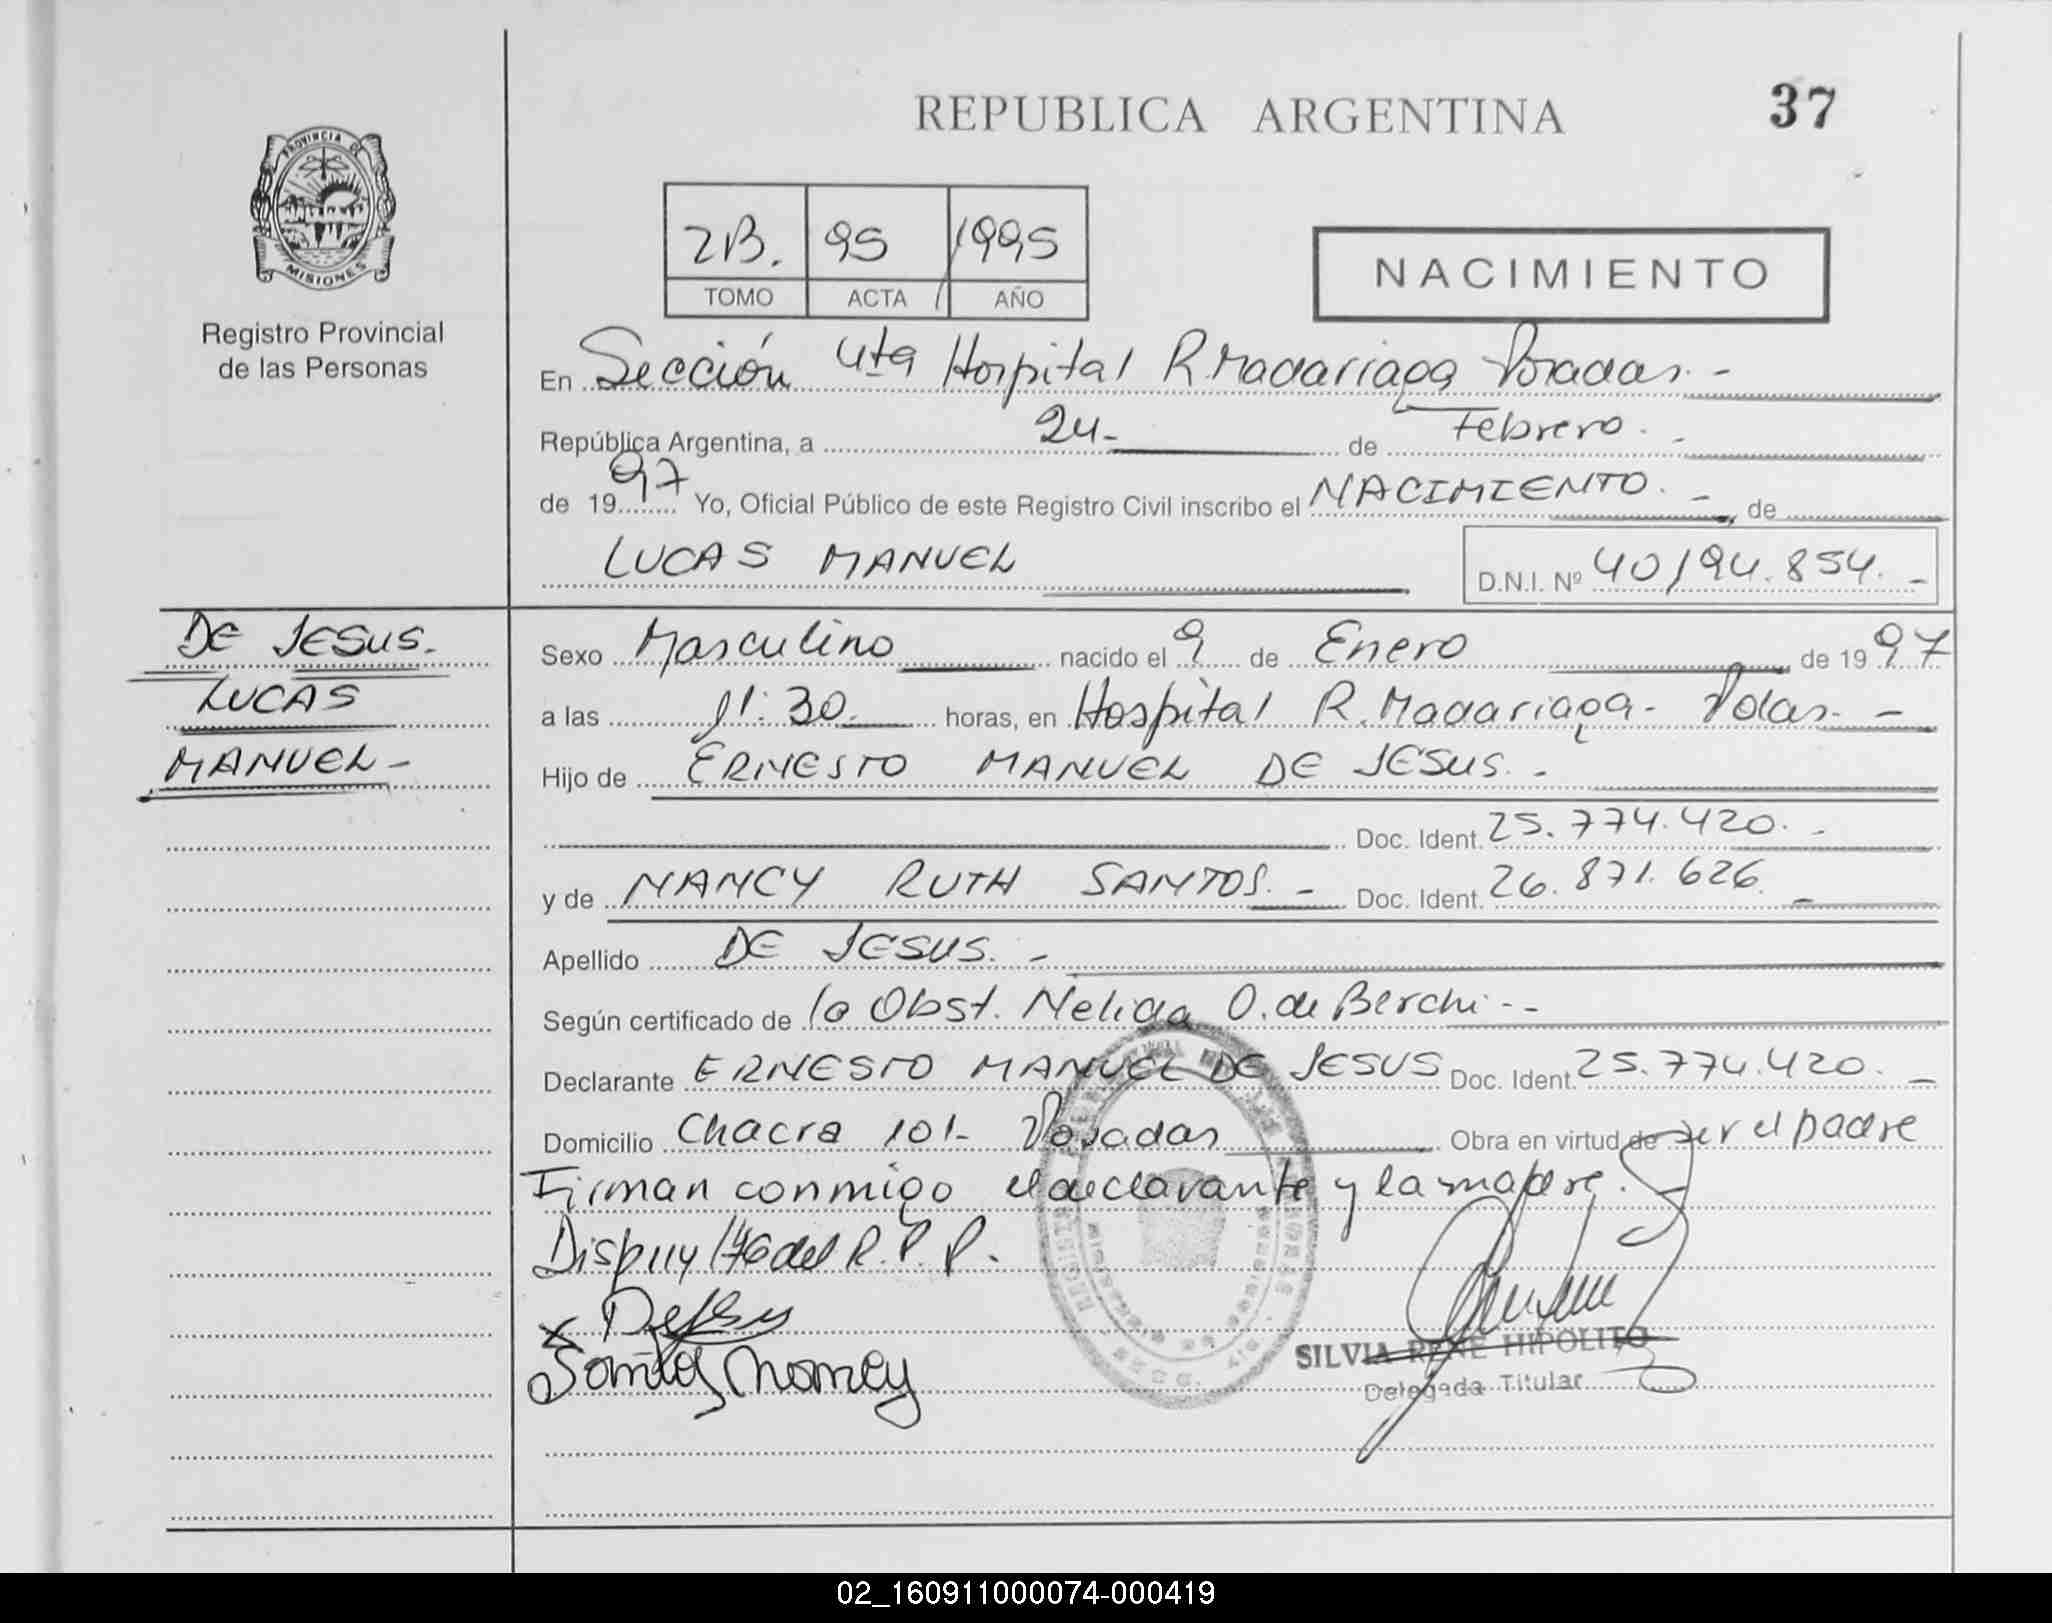 REPUBLICA ARGENTINA
37
PROVINCIA DE
MISIONES
Registro Provincial
de las Personas
2B. 95 1995
TOMO ACTA AÑO
NACIMIENTO
En Sección 4ta Hospital R. Madariaga Posadas. -
República Argentina, a 24 - de Febrero. -
de 1997 Yo, Oficial Público de este Registro Civil inscribo el NACIMIENTO. - de
LUCAS MANUEL D.N.I. Nº 40194.854. -
DE JESUS.
LUCAS
MANUEL -
Sexo Masculino nacido el 9 de Enero de 1997
a las 11:30. horas, en Hospital R. Madariaga - Pdas. -
Hijo de ERNESTO MANUEL DE JESUS. -
Doc. Ident. 25.774.420. -
y de NANCY RUTH SANTOS. - Doc. Ident. 26.871.626. -
Apellido DE JESUS. -
Según certificado de la Obst. Nelida O. de Berchi - -
Declarante ERNESTO MANUEL DE JESUS Doc. Ident. 25.774.420. -
Domicilio Chacra 101 - Posadas Obra en virtud de ser el padre
Firman conmigo el declarante y la madre. -
Disp 114/146 del R.P.P.
x
Santos Nancy
SILVIA RENE HIPOLITO
Delegada Titular
02_160911000074-000419